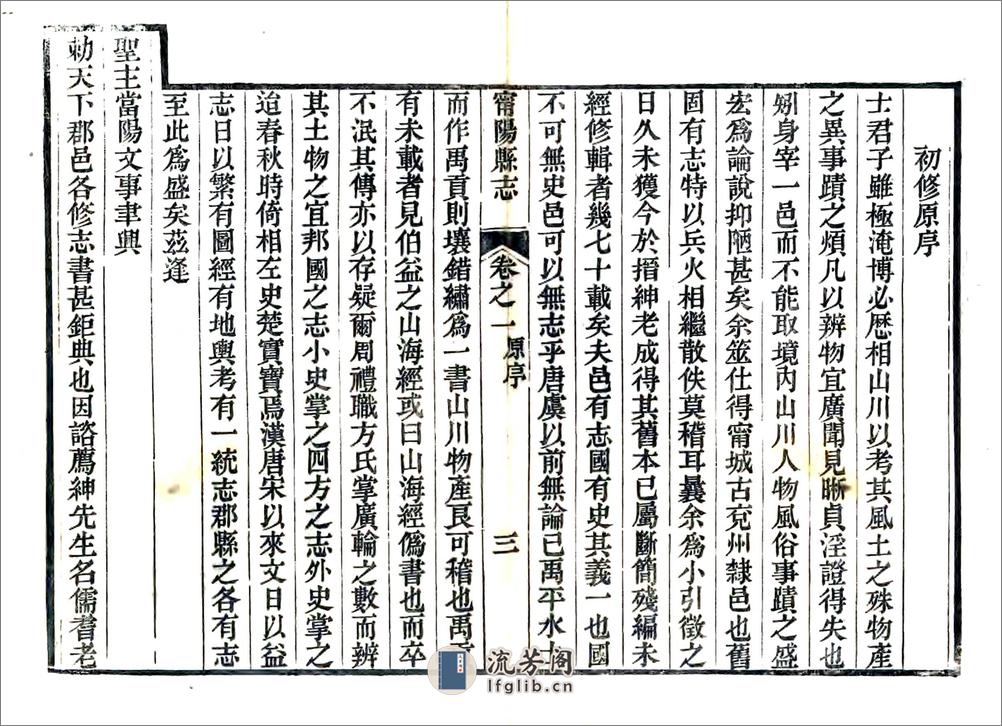 初修原序
士君子雖極淹博必厯相山川以考其風土之殊物產
之異事蹟之煩凡以辨物宜廣聞見晰貞淫證得失也
矧身宰一邑而不能取境內山川人物風俗事蹟之盛
宏爲論說抑陋甚矣余筮仕得甯城古兖州隸邑也舊
固有志特以兵火相繼散佚莫稽耳曩余爲小引徵之
日久未獲今於搢紳老成得其舊本已屬斷簡殘編未
經修輯者幾七十載矣夫邑有志國有史其義一也國
不可無史邑可以無志乎唐虞以前無論已禹平水土
甯陽縣志
卷之一 原序
三
而作禹貢則壤錯繡爲一書山川物產艮可稽也禹貢
有未載者見伯益之山海經或曰山海經僞書也而卒
不泯其傳亦以存疑爾周禮職方氏掌廣輪之數而辨
其土物之宜邦國之志小史掌之四方之志外史掌之
迨春秋時倚相左史楚寶寶焉漢唐宋以來文日以益
志日以繁有圖經有地輿考有一統志郡縣之各有志
至此爲盛矣茲逢
聖主當陽文事聿興
勅天下郡邑各修志書甚鉅典也因諮薦紳先生名儒耆老
流芳阁
lfglib.cn